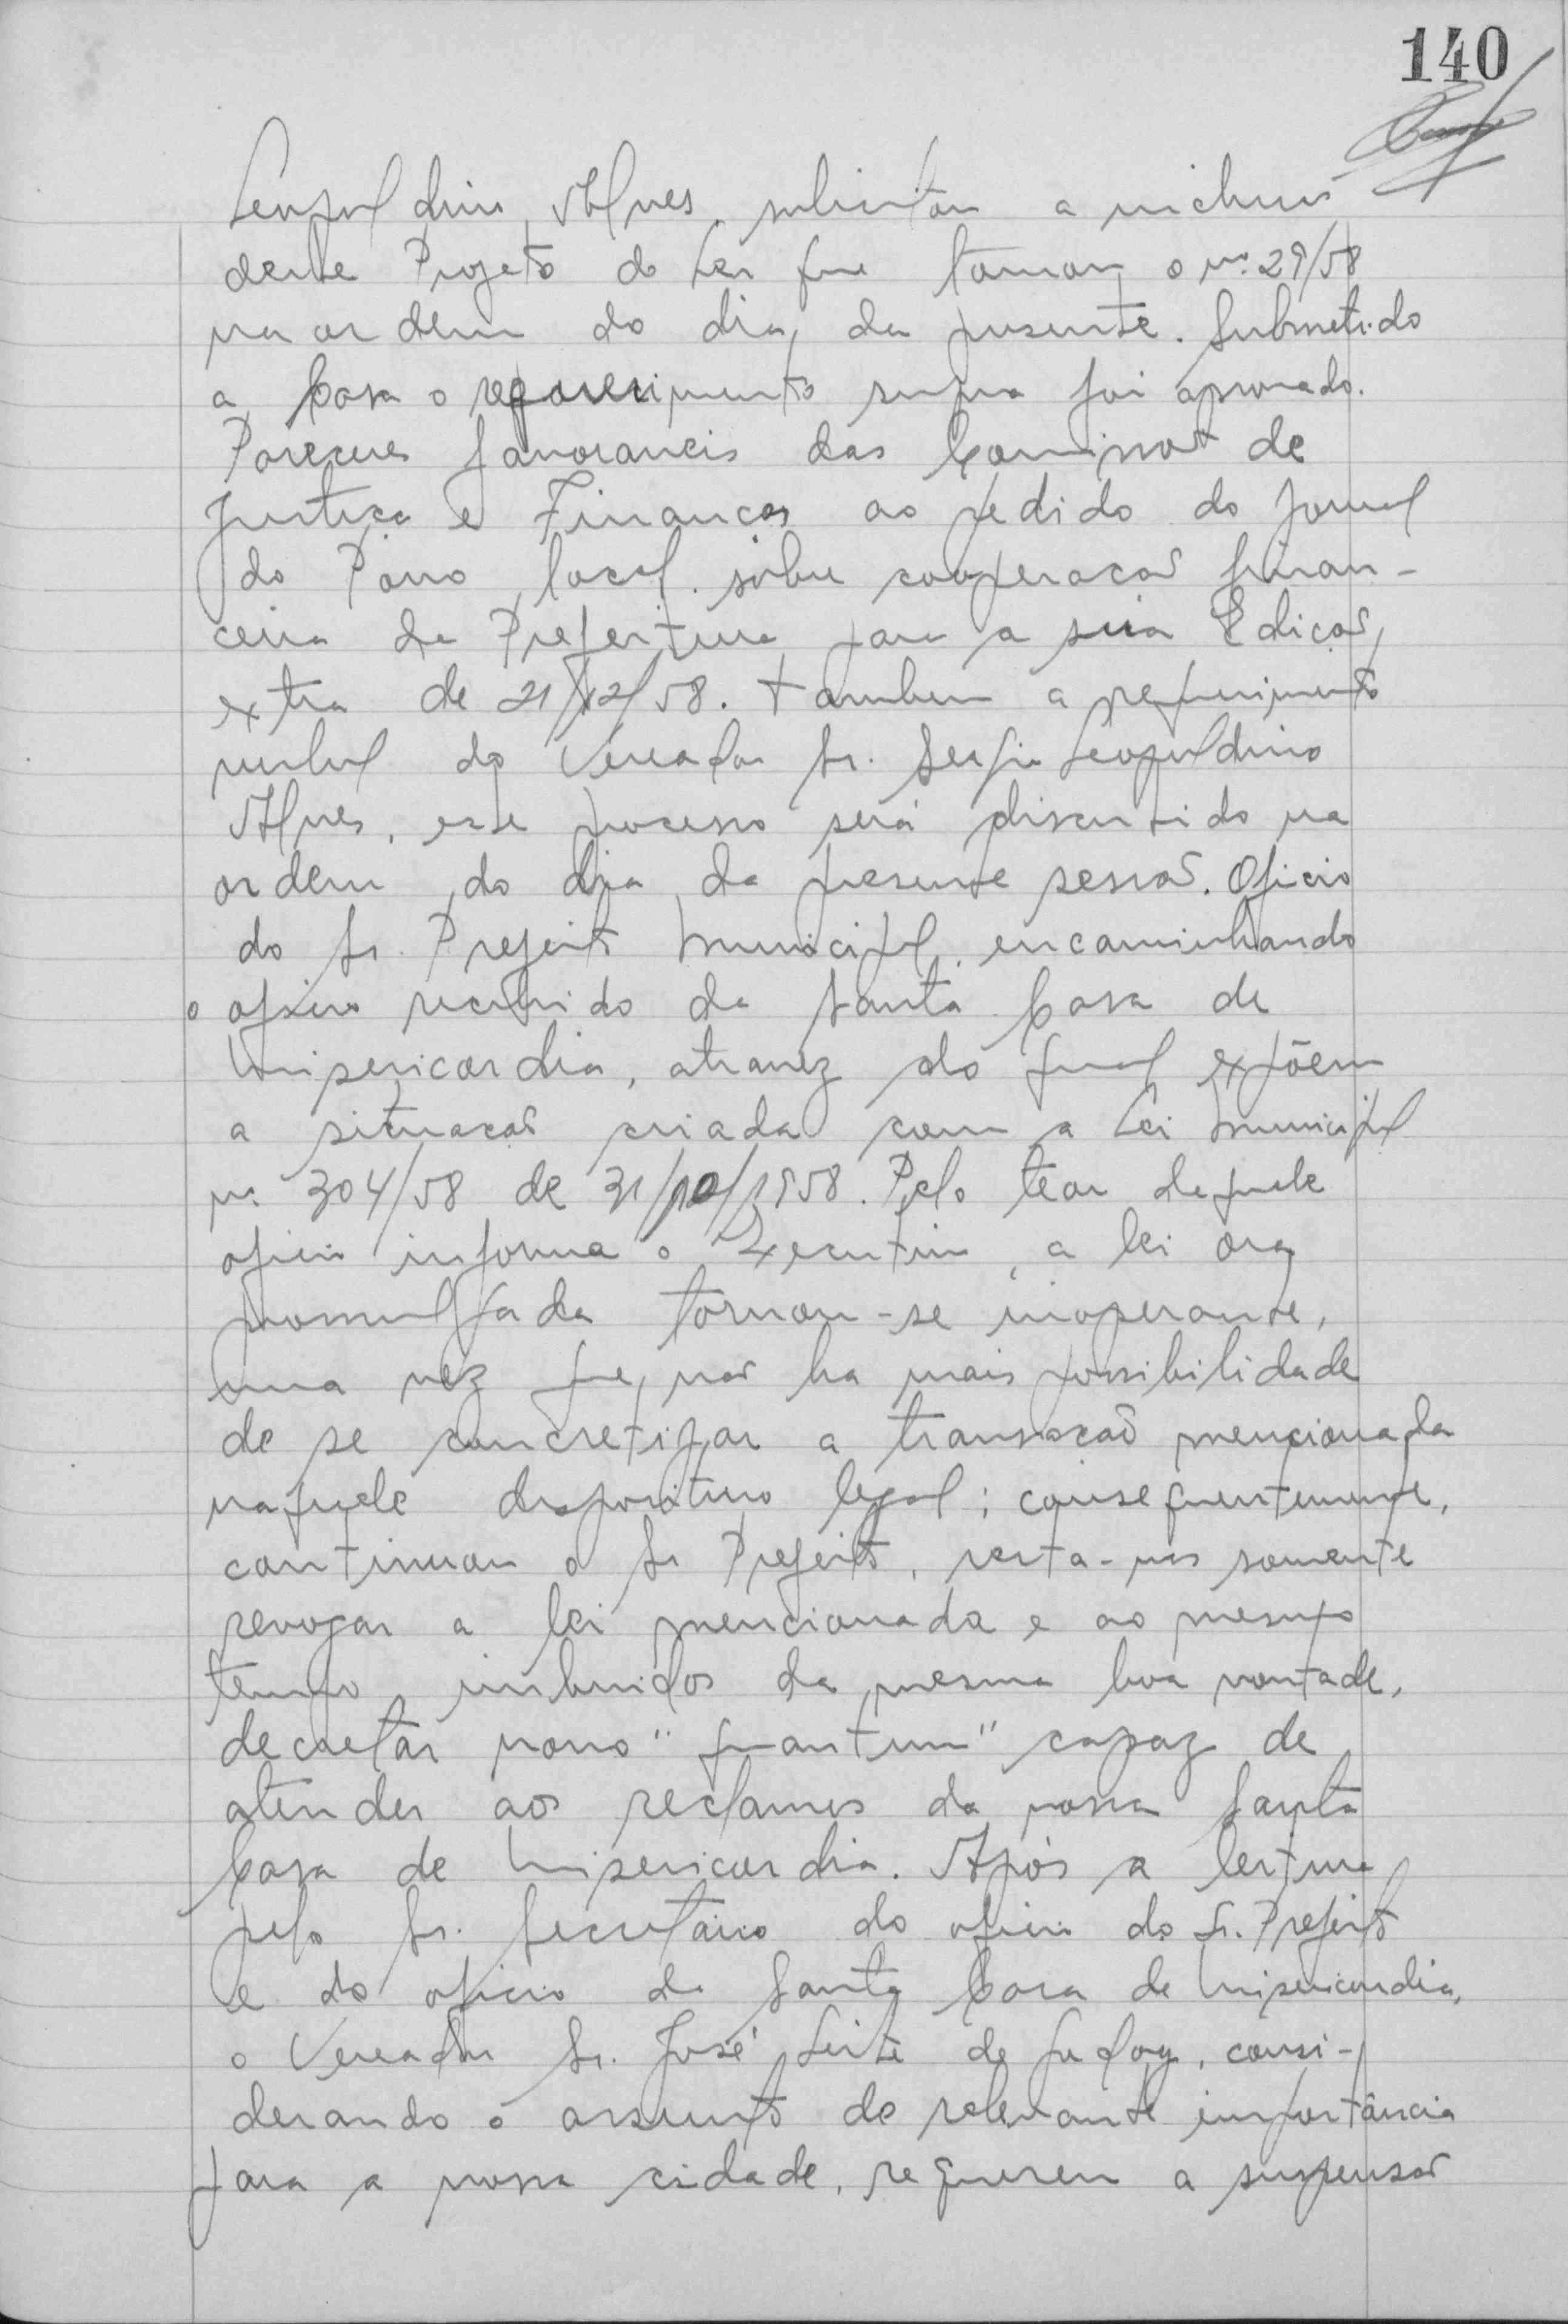 140
Leopoldino Alves, solicitou a inclusão
deste Projeto de Lei que tomou o nº 29/58
na ordem do dia, da presente. Submetido
a Casa o requerimento supra foi aprovado.
Pareceres favoraveis das Comissoẽs de
Justiça e Finanças ao pedido do Jornal
do Povo, local. sôbre cooperação finan-
ceira da Prefeitura para a sua Edição,
extra de 21/12/58. Tambem a requerimento
verbal do Vereador Sr. Sergio Leopoldino
Alves, este processo será discutido na
ordem do dia da presente sessão. Oficio
do Sr. Prefeito Municipal, encaminhando
o oficio recebido da Santa Casa de
Misericordia, atravez do qual expõem
a situação criada com a Lei Municipal
nº 304/58 de 31/10/1958. Pelo teor daquele
oficio informa o Executivo, a lei ora
promulgada tornou-se inoperante,
uma vez que, não ha mais possibilidade
de se concretizar a transação mencionada
naquele dispositivo legal; consequentemente,
continuou o Sr Prefeito, resta-nos somente
revogar a lei mencionada e ao mesmo
tempo, imbuidos da mesma boa vontade,
decretar novo "quantum" capaz de
atender aos reclamos da nossa Santa
Casa de Misericordia. Após a leitura
pelo Sr. Secretário do oficio do Sr. Prefeito
e do oficio da Santa Casa de Misericordia,
o Vereador Sr. José Leite de Godoy, consi-
derando o assunto de relevante importância
para a nossa cidade, requereu a suspensão